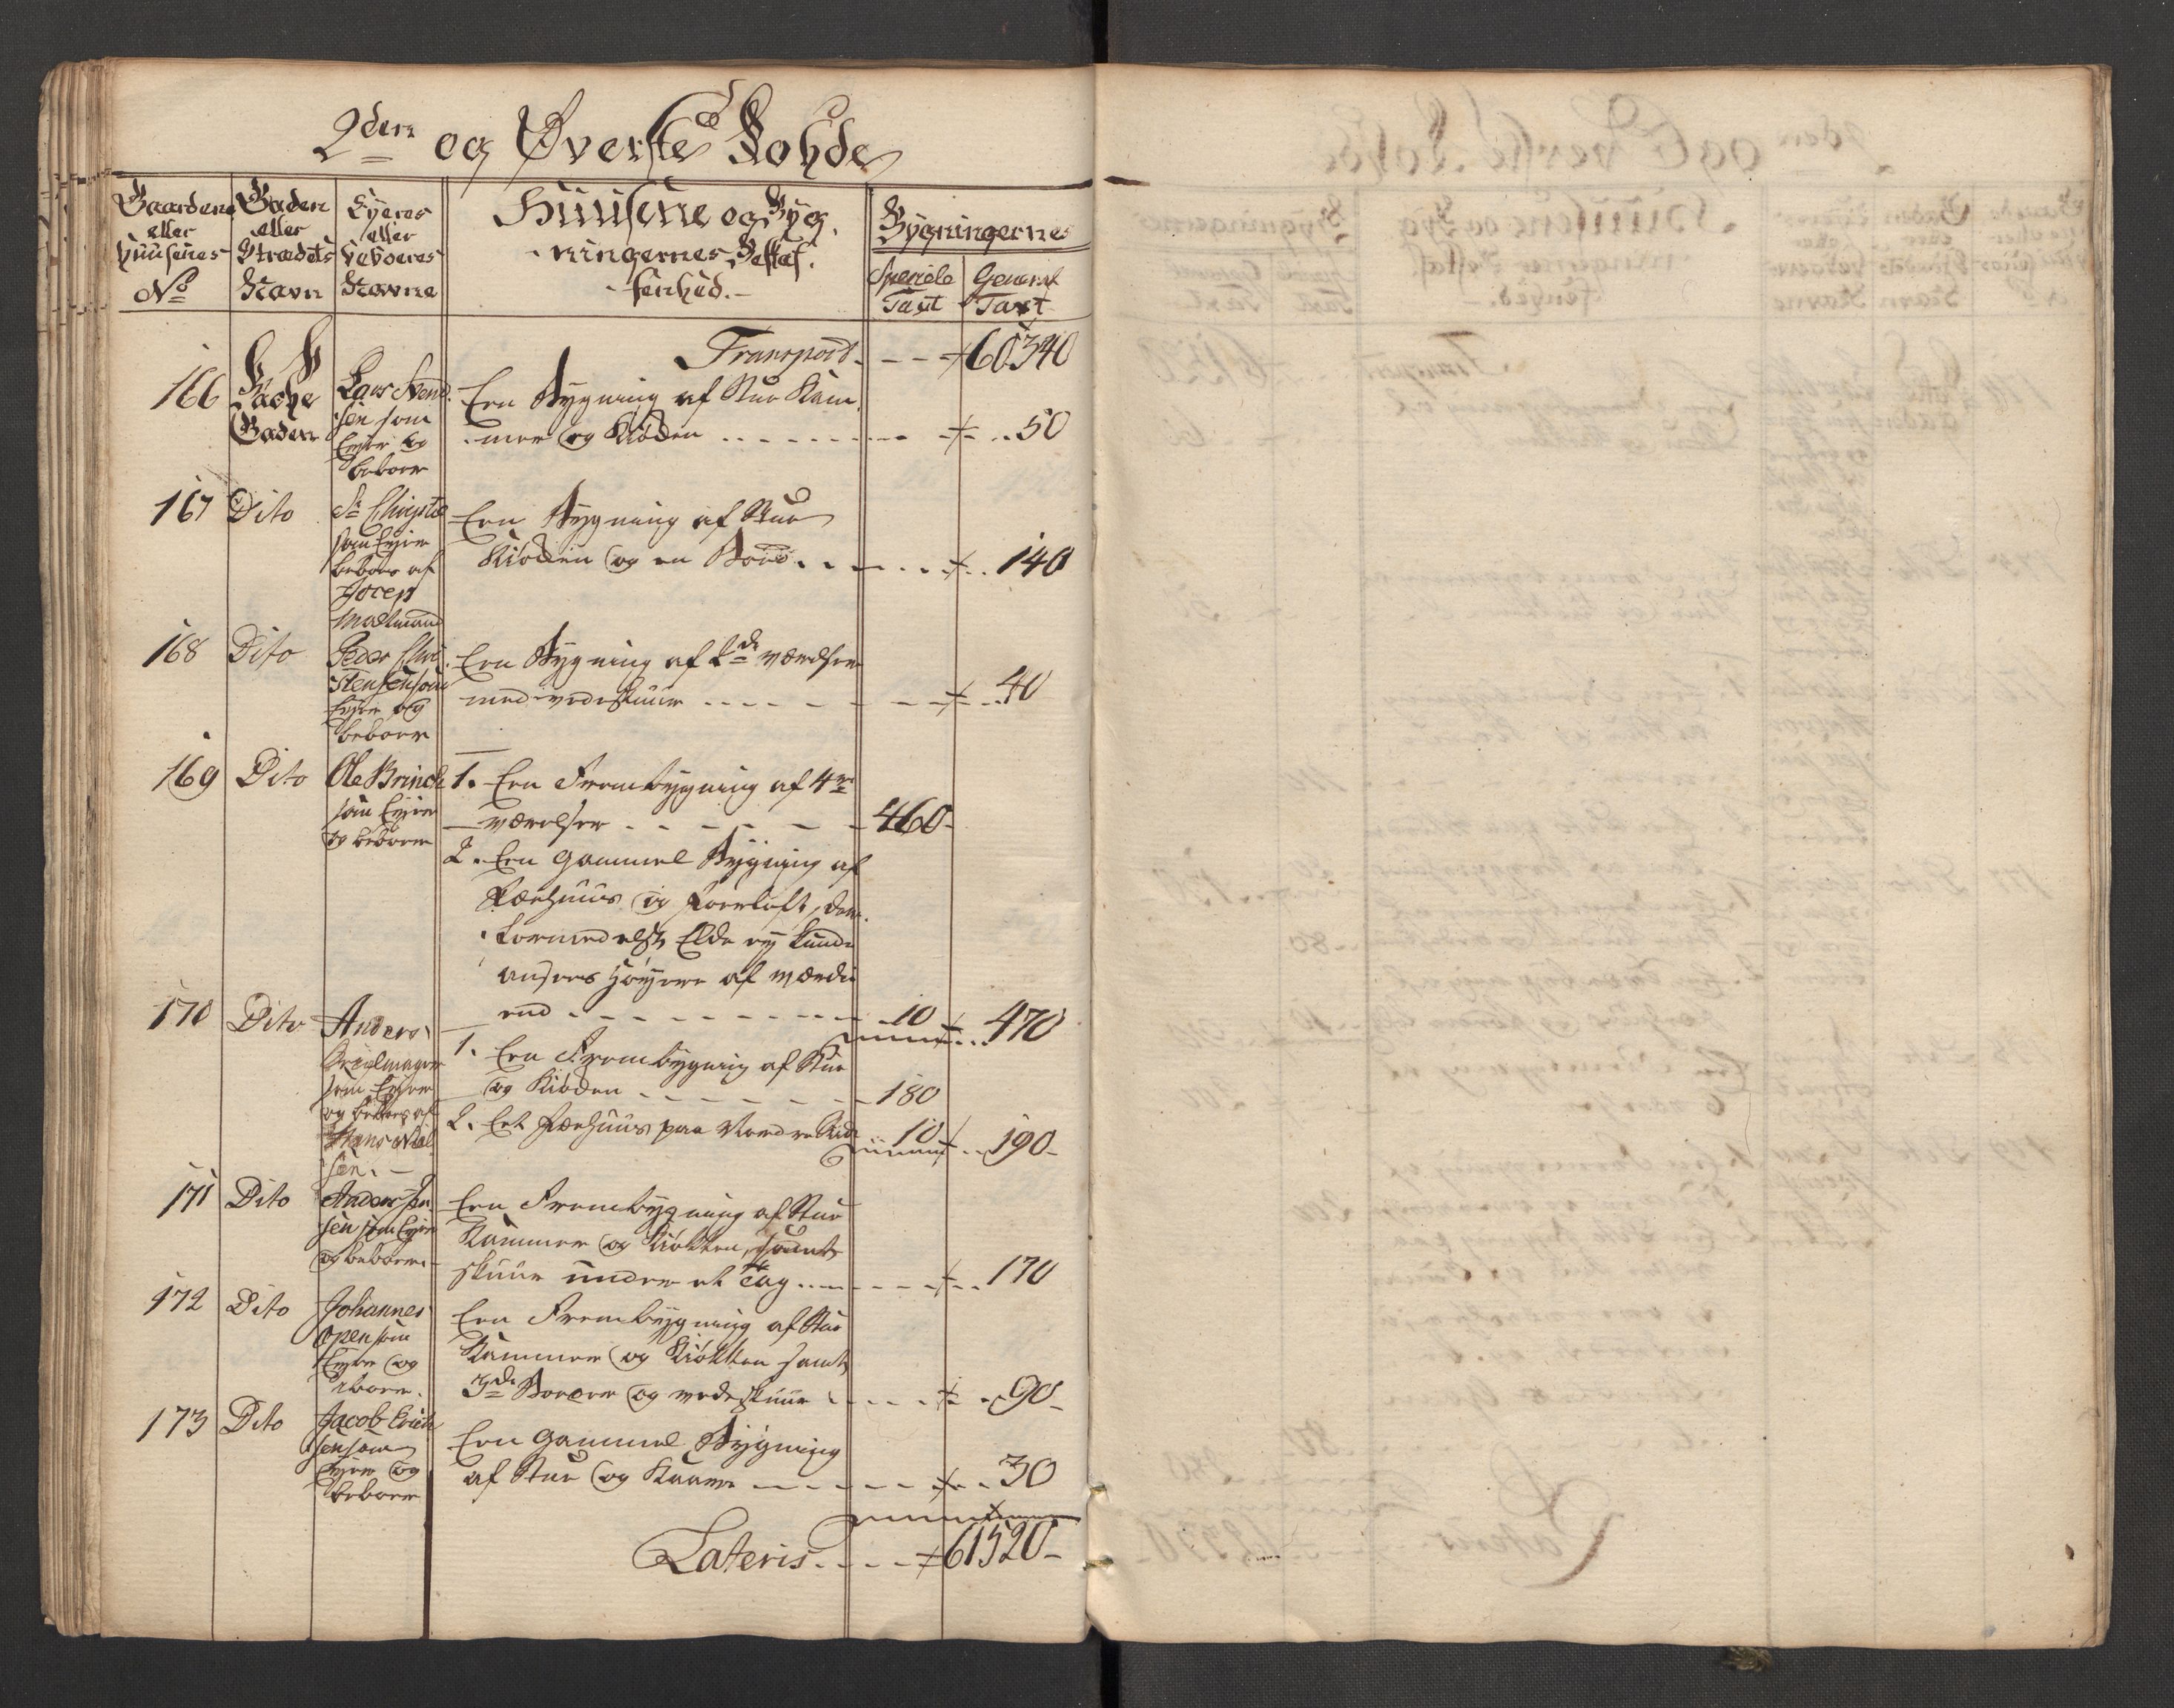 2den og Øverste Rohde
Gaardene eller Huusenes No
Gaden eller Strædets Navn
Eyeres eller Beboeres Navne
Huusene og Byg-
ningernes Beskaf-
fenhed.
Bygningernes
Speciele Taxt
General Taxt
Transport - - - 60340
166 Bache Gaden
Lars Svend-
sen som
Eyer og
beboer
Een Bygning af Stue Kam-
mer og Kiøcken . . . . 50
167 Dito
Sr Christie
som Eyer
beboes af
Jocep
Maelmand
Een Bygning af Stue
Kiøcken og en Boed . . . . 140
168 Dito
Peder Chri-
stensen som
Eyer og
beboer
Een Bygning af 2de værelser
med vedeskuur . . . . 40
169 Dito
Ole Brinch
som Eyer
og beboer
1. Een Frembygning af 4re
værelser - - - - 460
2. Een Gammel Bygning af
Fæehuus og Foerloft, den
formedelst Elde ey kunde
ansees høyere af værdie
end - - - - 10 470
170 Dito
Anders
som Eyer
og beboes af
Hans Niel-
sen.
1. Een Frembygning af Stue
og Kiøcken - - - - 180
2. Et Fæehuus paa Nordre Side 10 190
171 Dito
Anders Jen-
sen som Eyer
og beboer
Een Frembygning af Stue
Kammer og Kiøkken, samt
skuur under et Tag . . . . 170
172 Dito
Johannes
Open som
Eyer og
beboer.
Een Frembygning af Stue
Kammer og Kiøkken samt
3de Boeder og vedeskuur . . . . 90
173 Dito
Jacob Erich-
sen som
Eyer og
beboer
Een Gammel Bygning
af Stue og Kaave - - - - 30
Lateris. - - - 61520